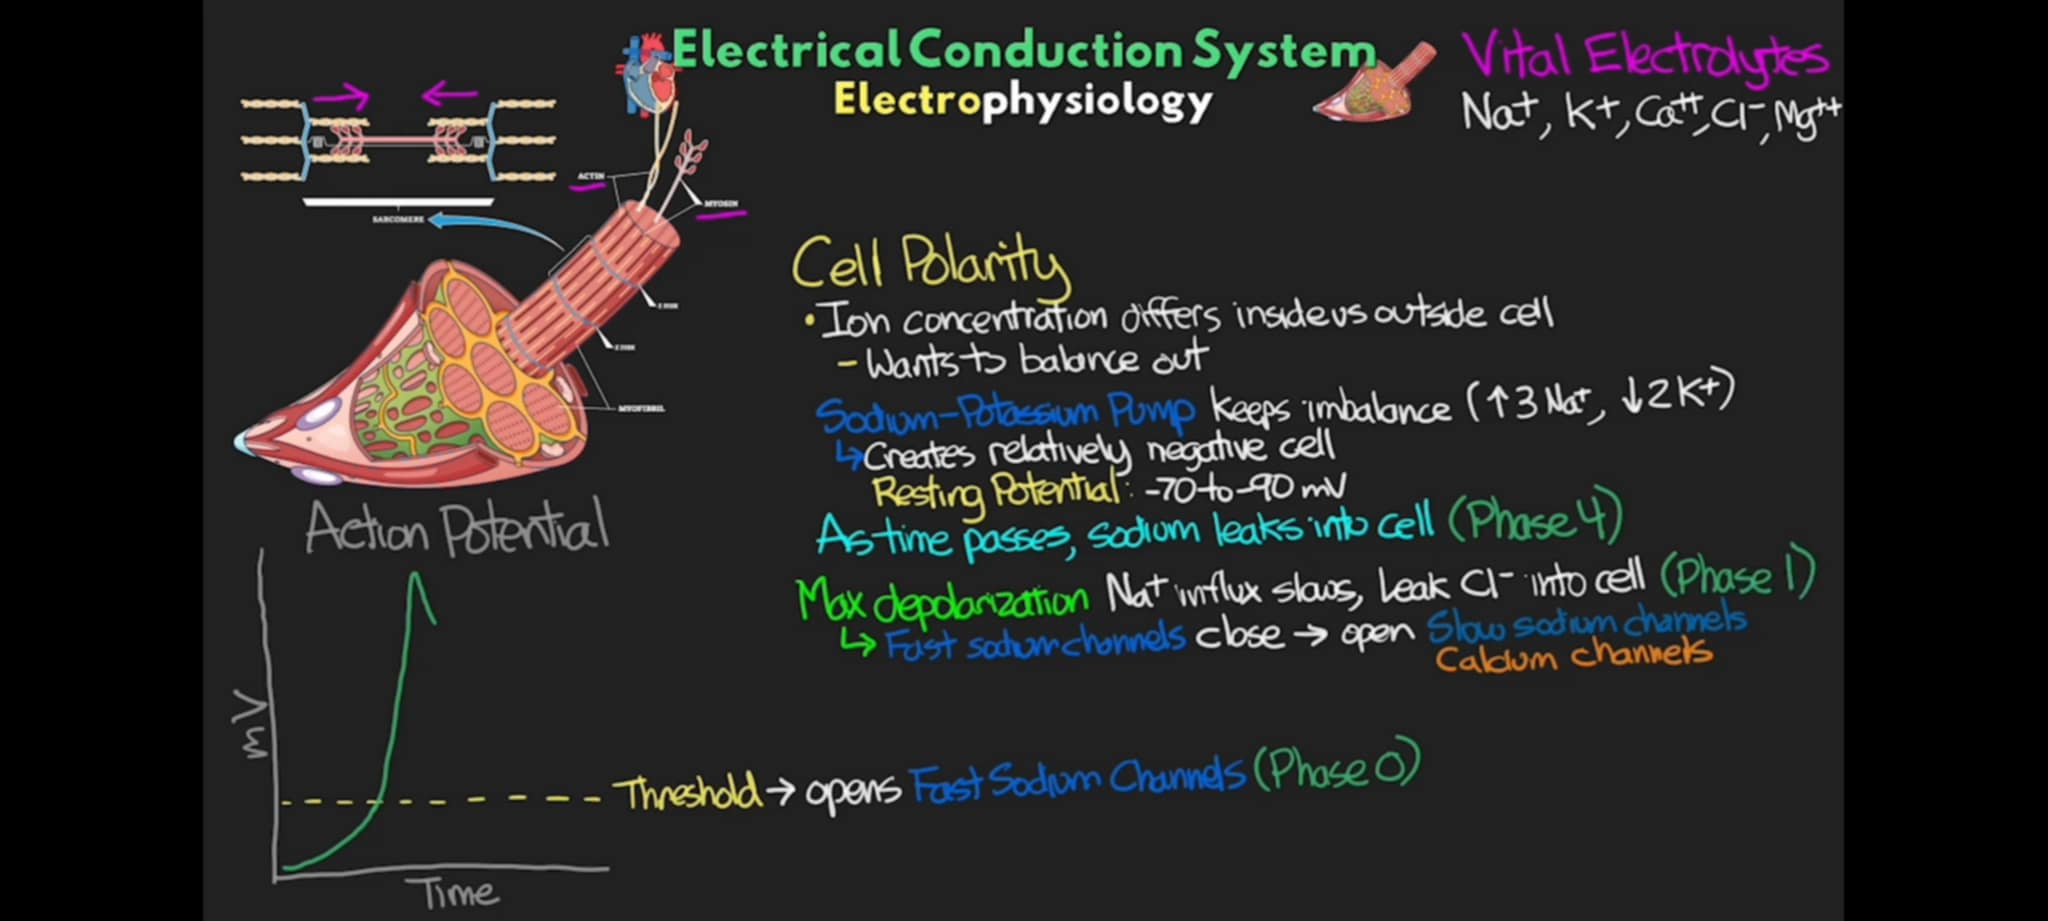 Electrical Conduction System
Electrophysiology
Vital Electrolytes
Na+, K+, Ca++, Cl-, Mg++
ACTIN
MYOSIN
SARCOMERE
Z DISK
Z DISK
MYOFIBRIL
Cell Polarity
• Ion concentration differs inside vs outside cell
- Wants to balance out
Sodium-Potassium Pump keeps imbalance (↑3 Na+, ↓2 K+)
↳ Creates relatively negative cell
Resting Potential: -70 to -90 mV
As time passes, sodium leaks into cell (Phase 4)
Max depolarization Na+ influx slows, Leak Cl- into cell (Phase 1)
↳ Fast sodium channels close → open Slow sodium channels
Calcium channels
Action Potential
mV
Threshold → opens Fast Sodium Channels (Phase 0)
Time